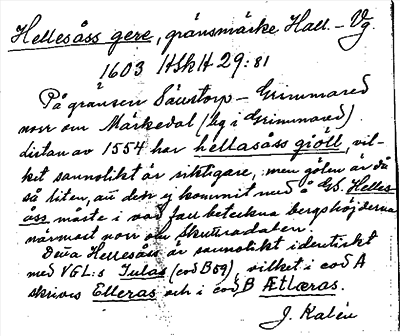 Hellesåss gere, gränsmärke Hall. – Vg.
1603 HSkH 29:81
På gränsen Säustorp – Grimmared
norr om Märkedal (bg i Grimmared).
listan av 1554 har hellasåss giötl, vil-
ket sannolikt är riktigare, men gölen är då
så liten, att den ej kommit med å GS. Helles-
åss måste i vad fall beteckna bergshöjderna
närmast norr om Skuttradalen.
Detta Hellesåss är sannolikt identiskt
med VGL:s Iulas (cod B59), vilket i cod A
skrives Elleras och i cod. B Ætlæras.
J. Kalén